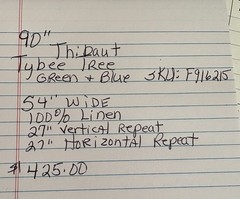 90"
Thibaut
Tybee Tree
Green + Blue SKU: F916215
54" Wide
100% Linen
27" Vertical Repeat
27" Horizontal Repeat
$425.00